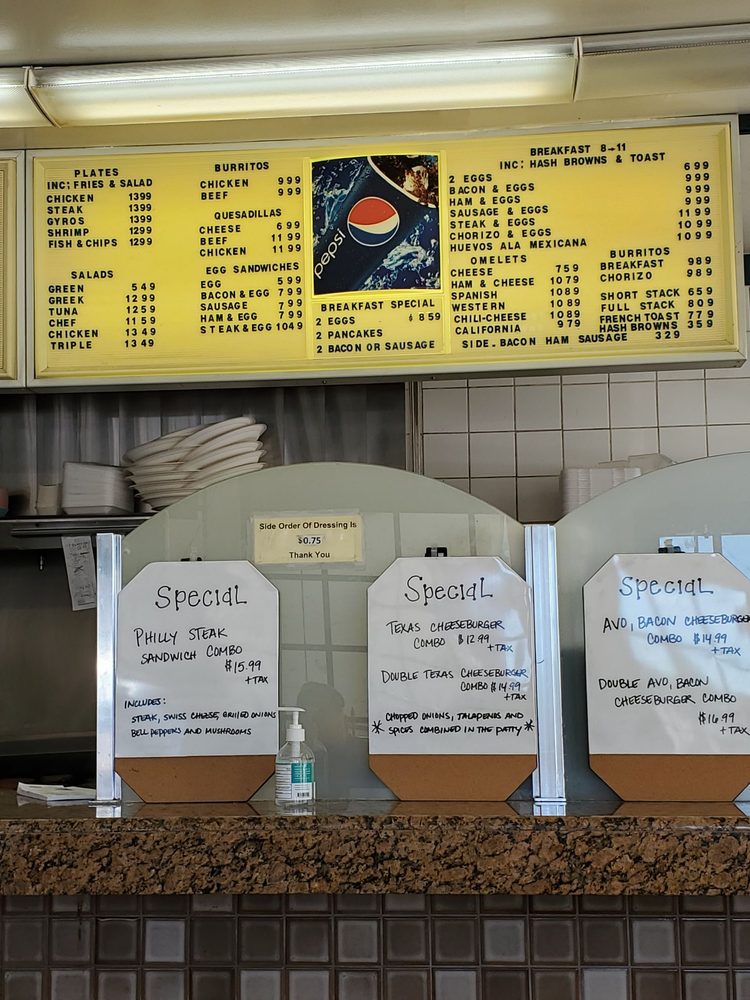 PLATES
INC; FRIES & SALAD
CHICKEN 1399
STEAK 1399
GYROS 1399
SHRIMP 1299
FISH & CHIPS 1299
SALADS
GREEN 549
GREEK 1299
TUNA 1259
CHEF 1159
CHICKEN 1349
TRIPLE 1349
BURRITOS
CHICKEN 999
BEEF 999
QUESADILLAS
CHEESE 699
BEEF 1199
CHICKEN 1199
EGG SANDWICHES
EGG 599
BACON & EGG 799
SAUSAGE 799
HAM & EGG 799
STEAK & EGG 1049
pepsi
BREAKFAST SPECIAL
2 EGGS $ 859
2 PANCAKES
2 BACON OR SAUSAGE
BREAKFAST 8-11
INC: HASH BROWNS & TOAST
2 EGGS 699
BACON & EGGS 999
HAM & EGGS 999
SAUSAGE & EGGS 999
STEAK & EGGS 1199
CHORIZO & EGGS 1099
HUEVOS ALA MEXICANA 1099
OMELETS
CHEESE 759
HAM & CHEESE 1079
SPANISH 1089
WESTERN 1089
CHILI-CHEESE 1089
CALIFORNIA 979
BURRITOS
BREAKFAST 989
CHORIZO 989
SHORT STACK 659
FULL STACK 809
FRENCH TOAST 779
HASH BROWNS 359
SIDE - BACON HAM SAUSAGE 329
Side Order Of Dressing Is
$0.75
Thank You
SpeciaL
PHILLY STEAK
SANDWICH COMBO
$15.99
+TAX
INCLUDES:
STEAK, SWISS CHEESE, GRILLED ONIONS
BELL PEPPERS AND MUSHROOMS
SpeciaL
TEXAS CHEESEBURGER
COMBO $12.99
+TAX
DOUBLE TEXAS CHEESEBURGER
COMBO $14.99
+TAX
* CHOPPED ONIONS, JALAPENOS AND
SPICES COMBINED IN THE PATTY *
SpeciaL
AVO, BACON CHEESEBURGER
COMBO $14.99
+TAX
DOUBLE AVO, BACON
CHEESEBURGER COMBO
$16.99
+TAX